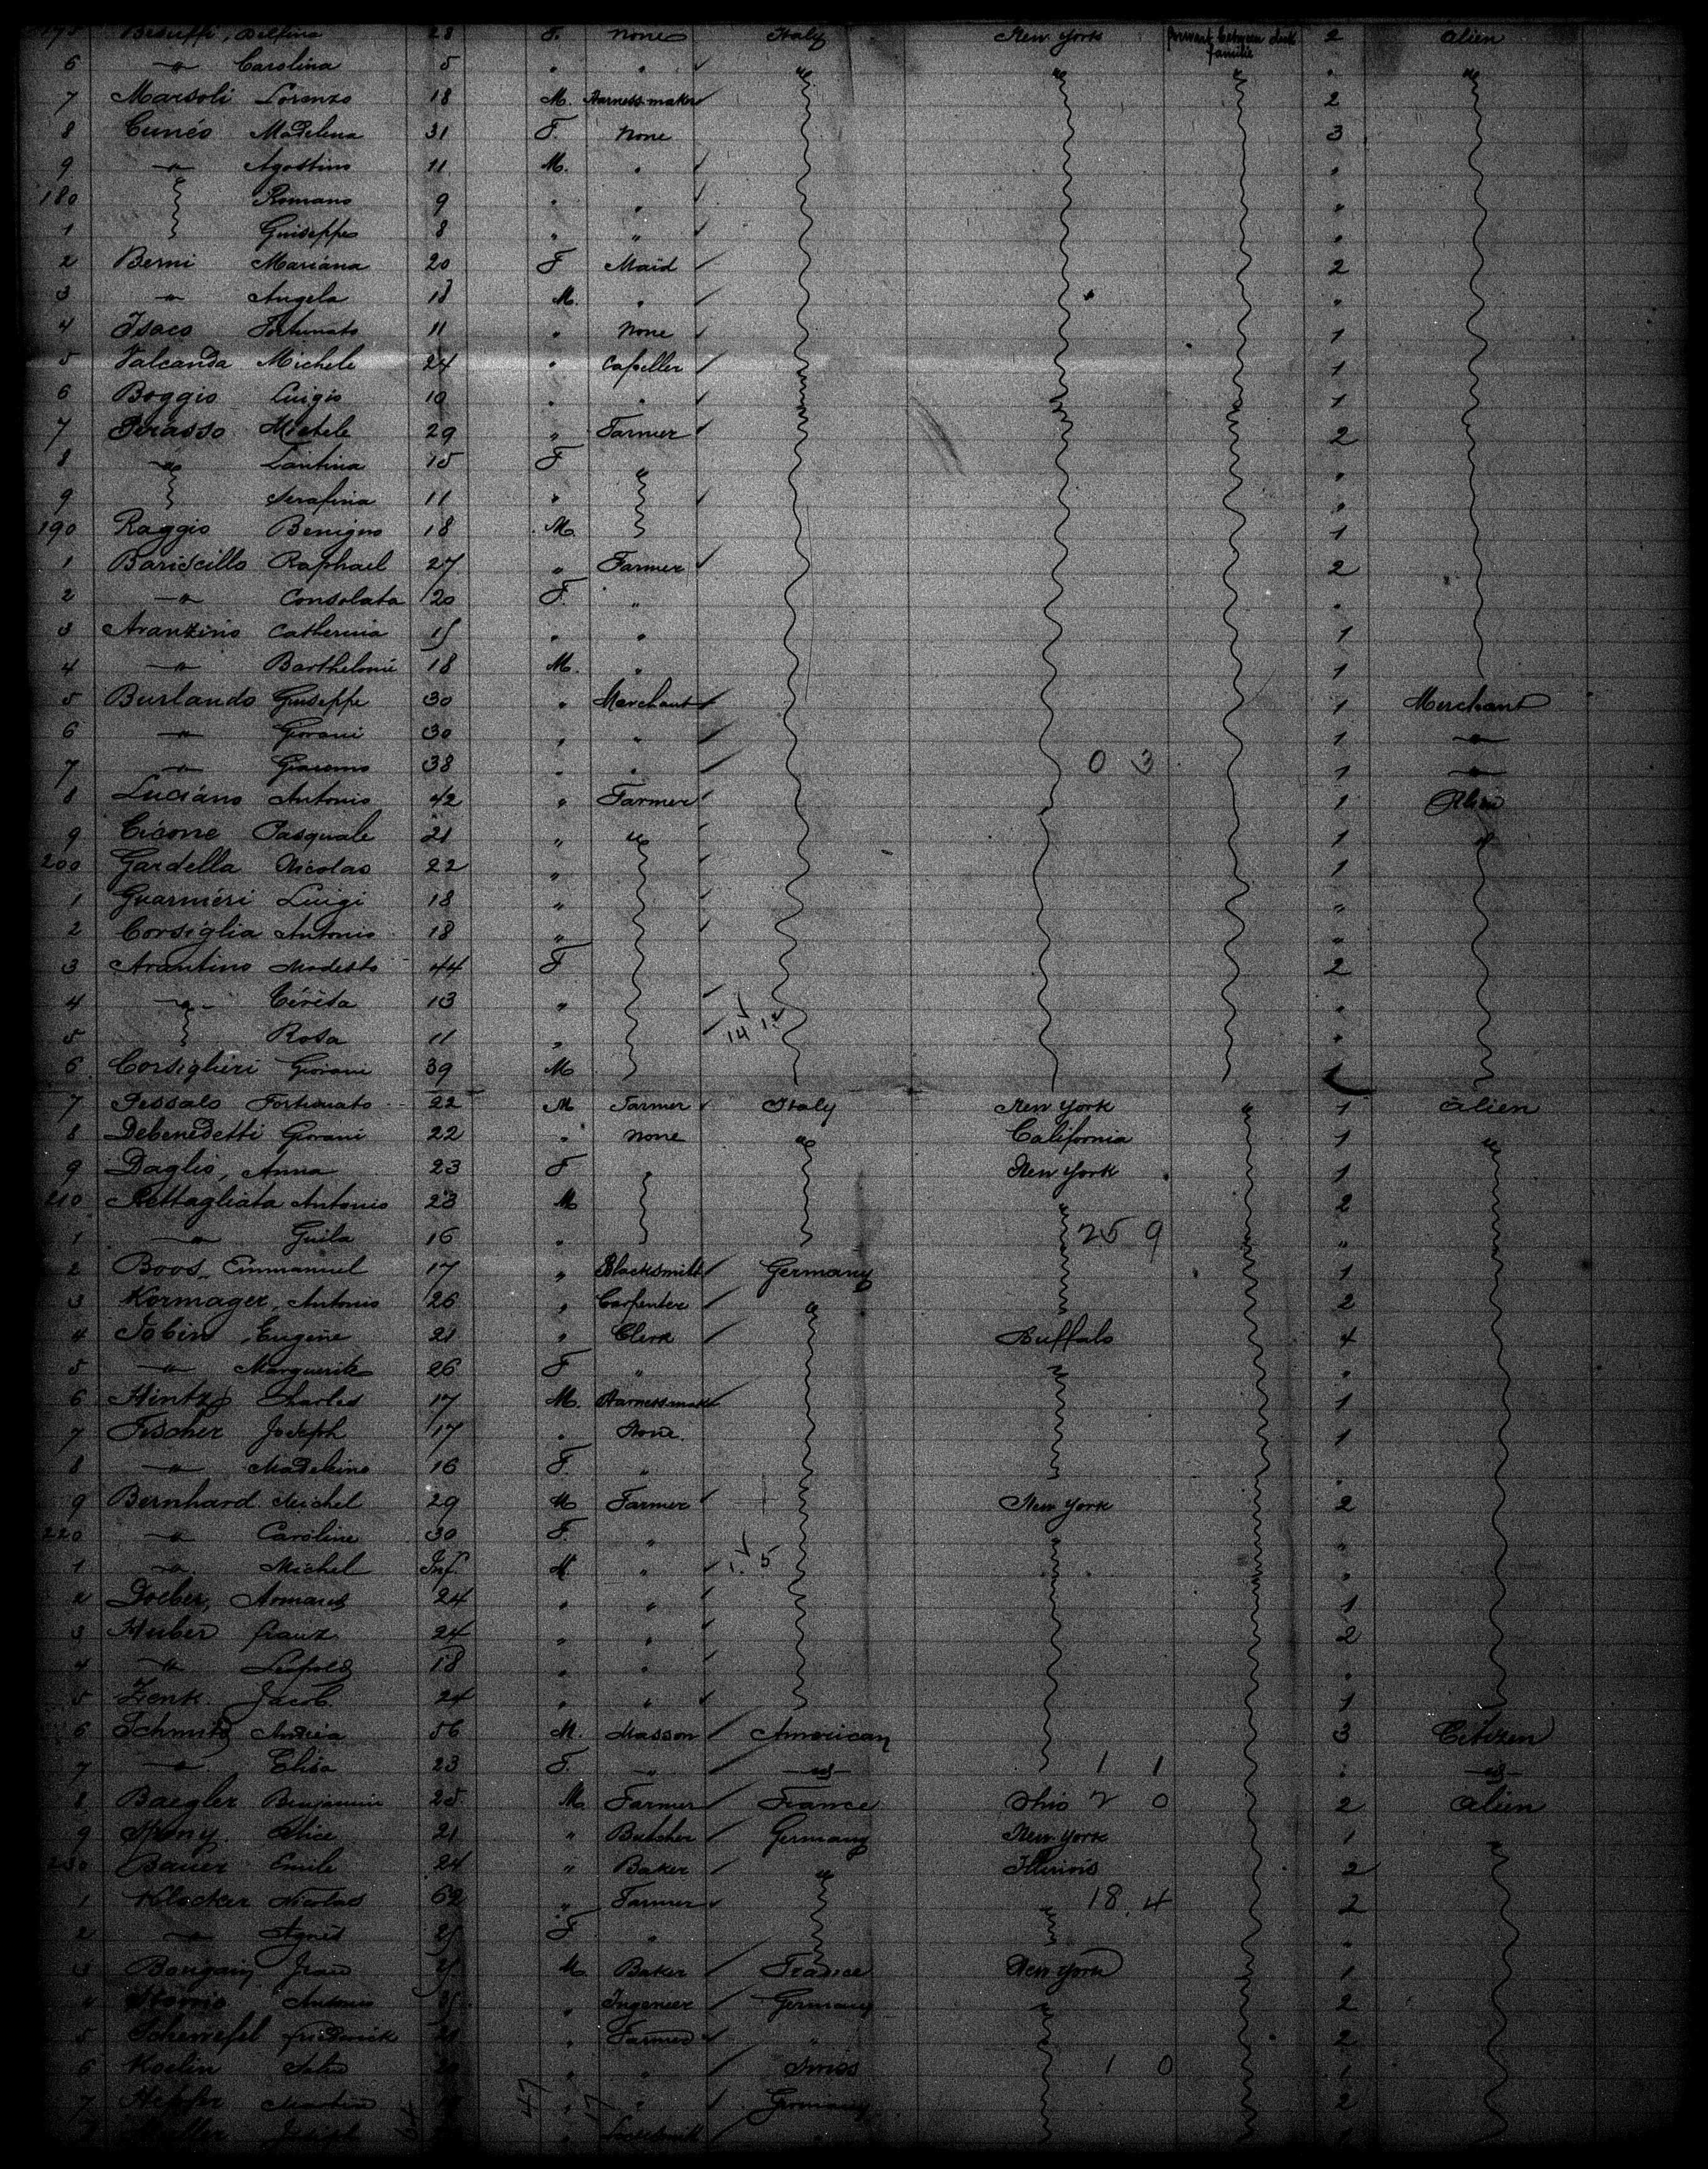 175 Besuffi, Delfina 28 F. none Italy New York forward between deck familie 2 alien
6 -"- Carolina 5 " " "
7 Marsoli Lorenzo 18 M. Harnessmaker 2
8 Cuneo Madelena 31 F. none 3
9 -"- Agostino 11 M. " "
180 Romano 9 " " "
1 Guiseppe 8 " " "
2 Berni Mariana 20 F Maid 2
3 -"- Angela 18 M. " "
4 Isaco Fortunato 11 " none 1
5 Valcanda Michele 24 " Capeller 1
6 Boggio Luigio 10 " " 1
7 Perasso Michele 29 " Farmer 2
8 -"- Santina 15 F "
9 Serafina 11 " "
190 Raggio Benigno 18 M. 1
1 Bariscillo Raphael 27 " Farmer 2
2 -"- Consolata 20 F. " "
3 Avanzino Catherina 15 " " 1
4 -"- Barthelomi 18 M. " 1
5 Burlando Guiseppe 30 " Merchant 1 Merchant
6 -"- Giovani 30 " " 1 -"-
7 -"- Giacomo 38 " " 0 3 1 -"-
8 Luciano Antonio 42 " Farmer 1 Alien
9 Cicone Pasquale 21 " " 1 "
200 Gardella Nicolas 22 " 1
1 Guarnieri Luigi 18 " "
2 Corsiglia Antonio 18 " "
3 Avantino Modesto 44 F 2
4 -"- Cereta 13 " "
5 Rosa 11 " 14 12 "
6 Corsiglieri Giovani 39 M 1
7 Pessalo Fortunato 22 M Farmer Italy New York " 1 alien
8 Debenedetti Giovani 22 " none " California 1 "
9 Daglio, Anna 23 F " New York 1
210 Rettagliata Antonio 23 M " 2
1 -"- Guila 16 " 25 9 "
2 Boos, Emmanuel 17 " Blacksmith Germany 1
3 Kormager, Antonio 26 " Carpenter " 2
4 Tobin, Eugene 21 " Clerk Buffalo 4
5 -"- Marguerite 26 F " " "
6 Hintz Charles 17 M. Harnessmaker 1
7 Fischer Joseph 17 " None. 1
8 -"- Madeleine 16 F. " "
9 Bernhard Michel 29 M Farmer New York 2
220 -"- Caroline 30 F. " " "
1 -"- Michel Inf. M " 1. 5 "
2 Doeber, 24 " " 1
3 Huber Franz 24 " " 2
4 -"- Leopold 18 " " "
5 Zenk Jacob 24 " " 1
6 Schmitz Andrea 56 M. Masson American 3 Citizen
7 -"- Elisa 23 F. -"- -"- 1 1 " -"-
8 Baegler Benjamin 25 M Farmer France Ohio 2 0 2 alien
9 Alice 21 " Butcher Germany New York 1 "
230 Bauer Emile 24 " Baker " Illinois 2
1 Klocker Nicolas 62 " Farmer 18.4 2
2 -"- Agnes 25 F " " "
3 Bougain Jean M Baker France New York 1
4 Antonio " Ingeneer Germany " 2
5 Frederick 21 " Farmer " 2
6 Koelin " " Swiss 1 0 1
7 Martin " " Germany 2
8 Joseph " Locksmith "